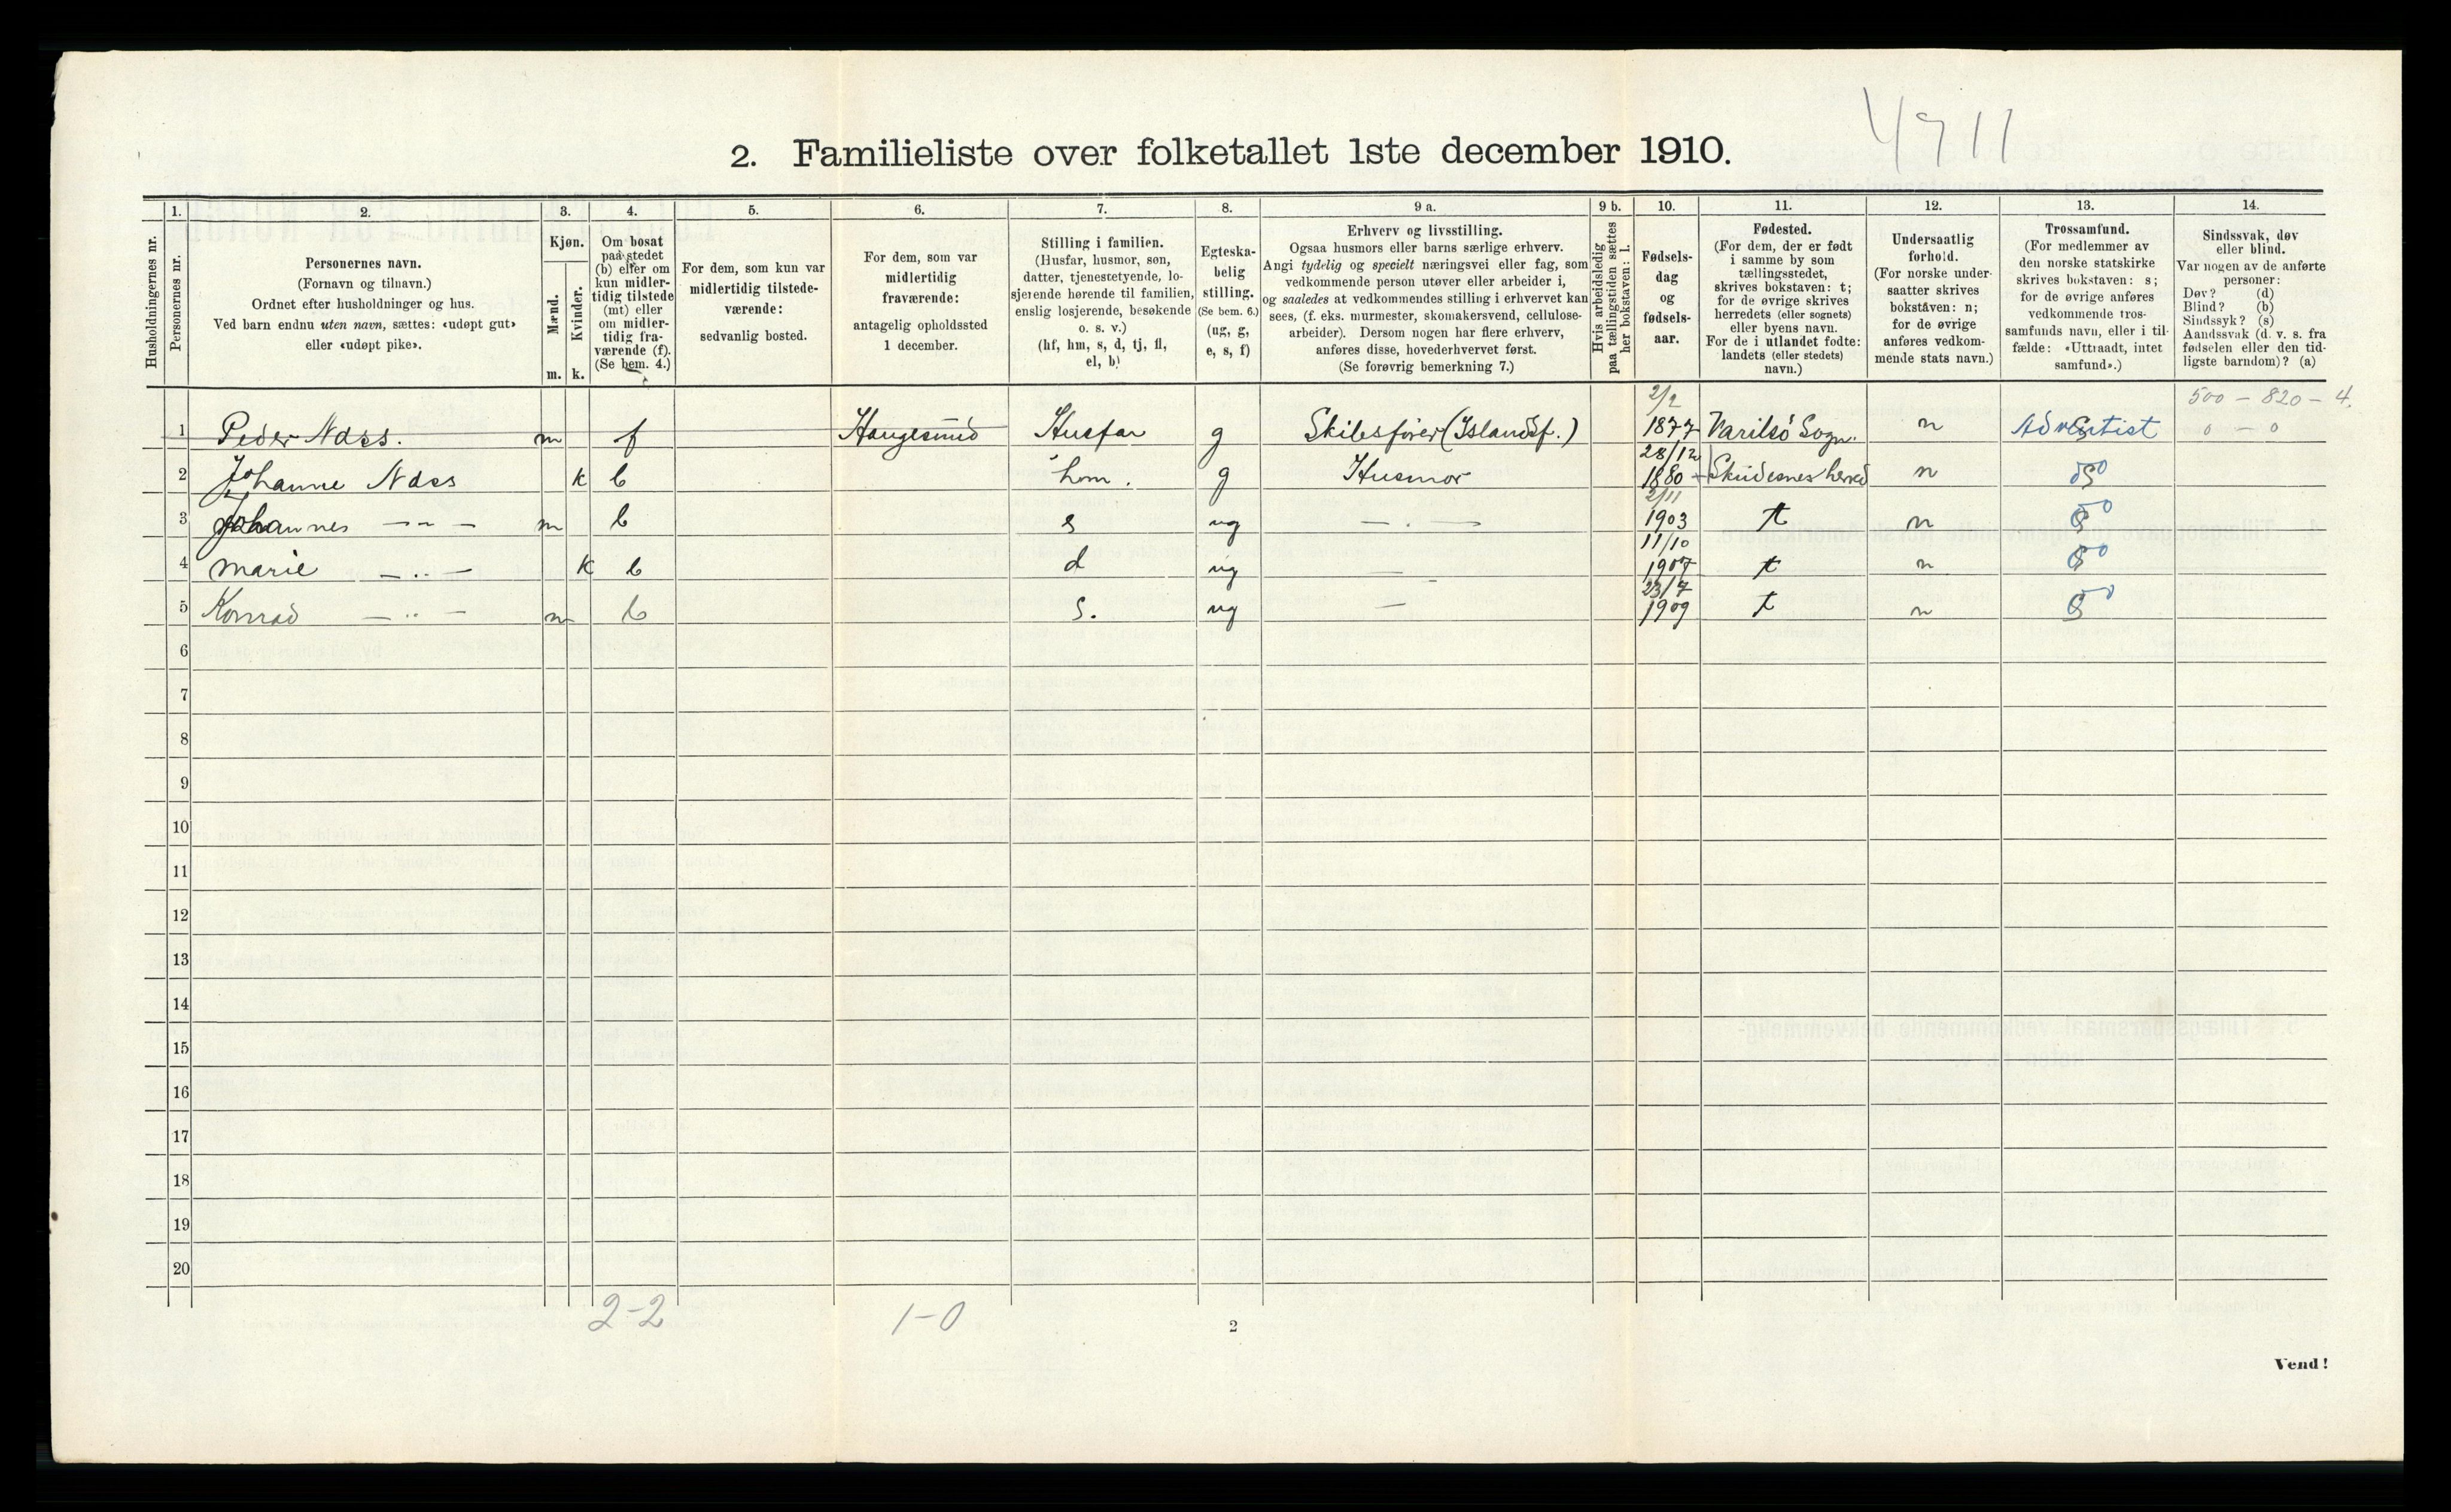 4911
2. Familieliste over folketallet 1ste december 1910.
1. 2. 3. 4. 5. 6. 7. 8. 9 a. 9 b. 10. 11. 12. 13. 14.
Husholdningernes nr.
Personernes nr.
Personernes navn.
(Fornavn og tilnavn.)
Ordnet efter husholdninger og hus.
Ved barn endnu uten navn, sættes: «udøpt gut»
eller «udøpt pike».
Kjøn.
Mænd.
Kvinder.
m. k.
Om bosat
paa stedet
(b) eller om
kun midler-
tidig tilstede
(mt) eller
om midler-
tidig fra-
værende (f).
(Se bem. 4.)
For dem, som kun var
midlertidig tilstede-
værende:
sedvanlig bosted.
For dem, som var
midlertidig
fraværende:
antagelig opholdssted
1 december.
Stilling i familien.
(Husfar, husmor, søn,
datter, tjenestetyende, lo-
sjerende hørende til familien,
enslig losjerende, besøkende
o. s. v.)
(hf, hm, s, d, tj, fl,
el, b)
Egteska-
belig
stilling.
(Se bem. 6.)
(ug, g,
e, s, f)
Erhverv og livsstilling.
Ogsaa husmors eller barns særlige erhverv.
Angi tydelig og specielt næringsvei eller fag, som
vedkommende person utøver eller arbeider i,
og saaledes at vedkommendes stilling i erhvervet kan
sees, (f. eks. murmester, skomakersvend, cellulose-
arbeider). Dersom nogen har flere erhverv,
anføres disse, hovederhvervet først.
(Se forøvrig bemerkning 7.)
Hvis arbeidsledig
paa tællingstiden sættes
her bokstaven: l.
Fødsels-
dag
og
fødsels-
aar.
Fødested.
(For dem, der er født
i samme by som
tællingsstedet,
skrives bokstaven: t;
for de øvrige skrives
herredets (eller sognets)
eller byens navn.
For de i utlandet fødte:
landets (eller stedets)
navn.)
Undersaatlig
forhold.
(For norske under-
saatter skrives
bokstaven: n;
for de øvrige
anføres vedkom-
mende stats navn.)
Trossamfund.
(For medlemmer av
den norske statskirke
skrives bokstaven: s;
for de øvrige anføres
vedkommende tros-
samfunds navn, eller i til-
fælde: «Uttraadt, intet
samfund».)
Sindssvak, døv
eller blind.
Var nogen av de anførte
personer:
Døv? (d)
Blind? (b)
Sindssyk? (s)
Aandssvak (d. v. s. fra
fødselen eller den tid-
ligste barndom)? (a)
500 – 820 – 4.
0 – 0
1 Peder Næss. m f Haugesund Husfar g Skibsfører (Islandsf.) 2/2 1877 Varilsö Sogn. n Adventist
2 Johanne Næss k b hm. g Husmor 28/12 1880 Skudesnes herred n s
3 Johannes —"— m b s ug — . — 2/11 1903 t n s
4 Marie —"— k b d ug — 11/10 1907 t n s
5 Konrad —"— m b s. ug — 23/7 1909 t n s
6
7
8
9
10
11
12
13
14
15
16
17
18
19
20
2-2 1-0
2
Vend!